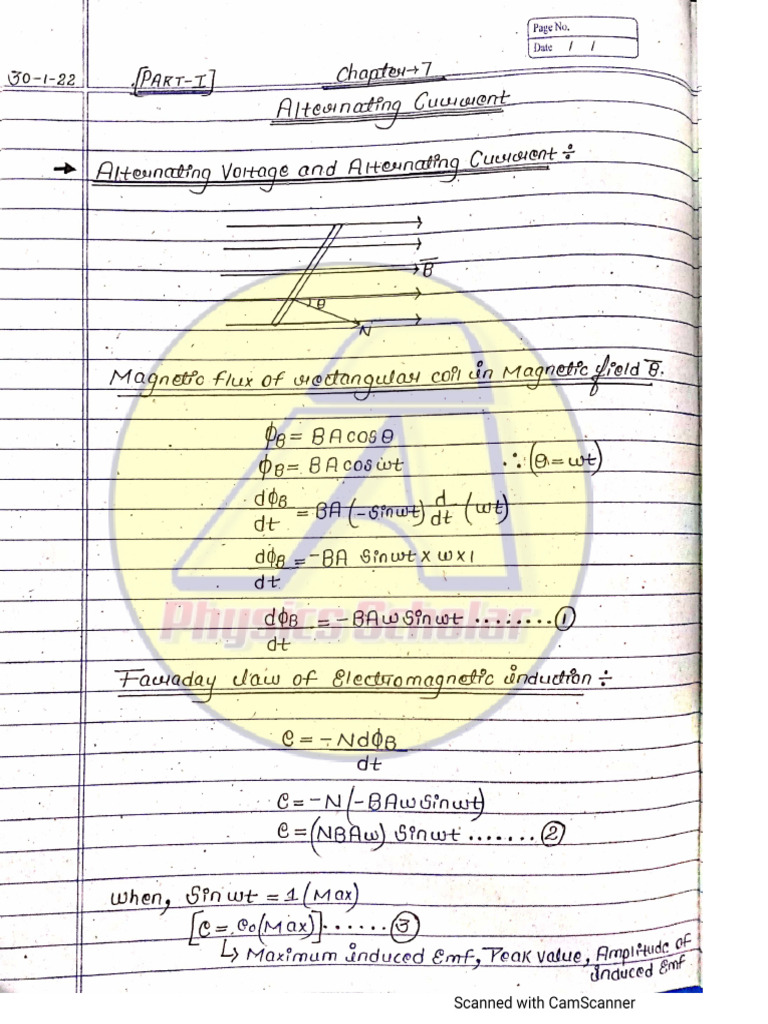 Page No.
Date / /
30-1-22 [PART-I] Chapter→7
Alternating Current
→ Alternating Voltage and Alternating Current ÷
B̅
θ
N
Magnetic flux of rectangular coil in Magnetic field B̅.
ϕB = BA cosθ
ϕB = BA cos ωt ∵ (θ = ωt)
dϕB/dt = BA (-Sin ωt) d/dt (ωt)
dϕB/dt = -BA Sin ωt × ω × 1
dϕB/dt = -BAω Sin ωt ........ ①
Physics Scholar
Faraday law of Electromagnetic induction ÷
e = -N dϕB/dt
e = -N (-BAω Sin ωt)
e = (NBAω) Sin ωt ....... ②
when, Sin ωt = 1 (Max)
[e = e₀ (Max)] ...... ③
↳ Maximum induced Emf, Peak value, Amplitude of
induced Emf
Scanned with CamScanner